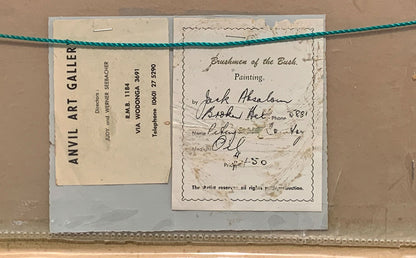 ANVIL ART GALLERY
Directors
JUDY and WERNER SEEBACHER
R.M.B. 1184
VIA WODONGA 3691
Telephone (060) 27 5290
Brushmen of the Bush
Painting.
by Jack Absalom
Broken Hill Phone 0881
Name
Medium Oil
Price $ 150
The Artist reserves all rights